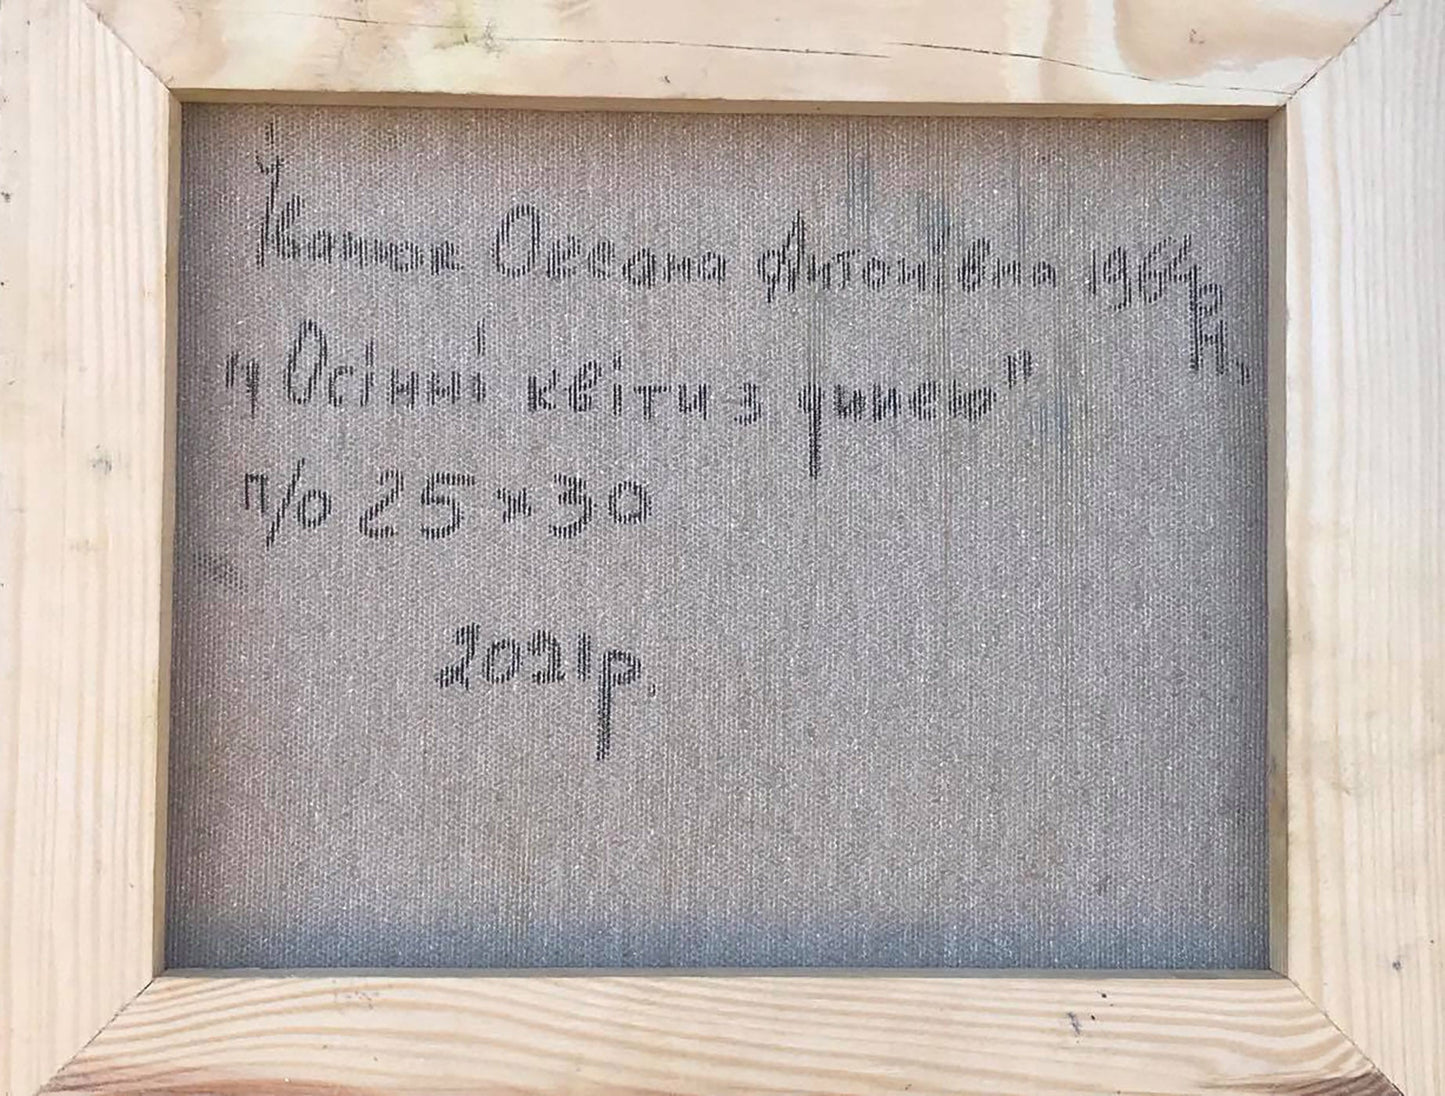 Канюк Оксана Антонівна 1964 р н.
"Осінні квіти з динею"
п/о 25×30
2021р.